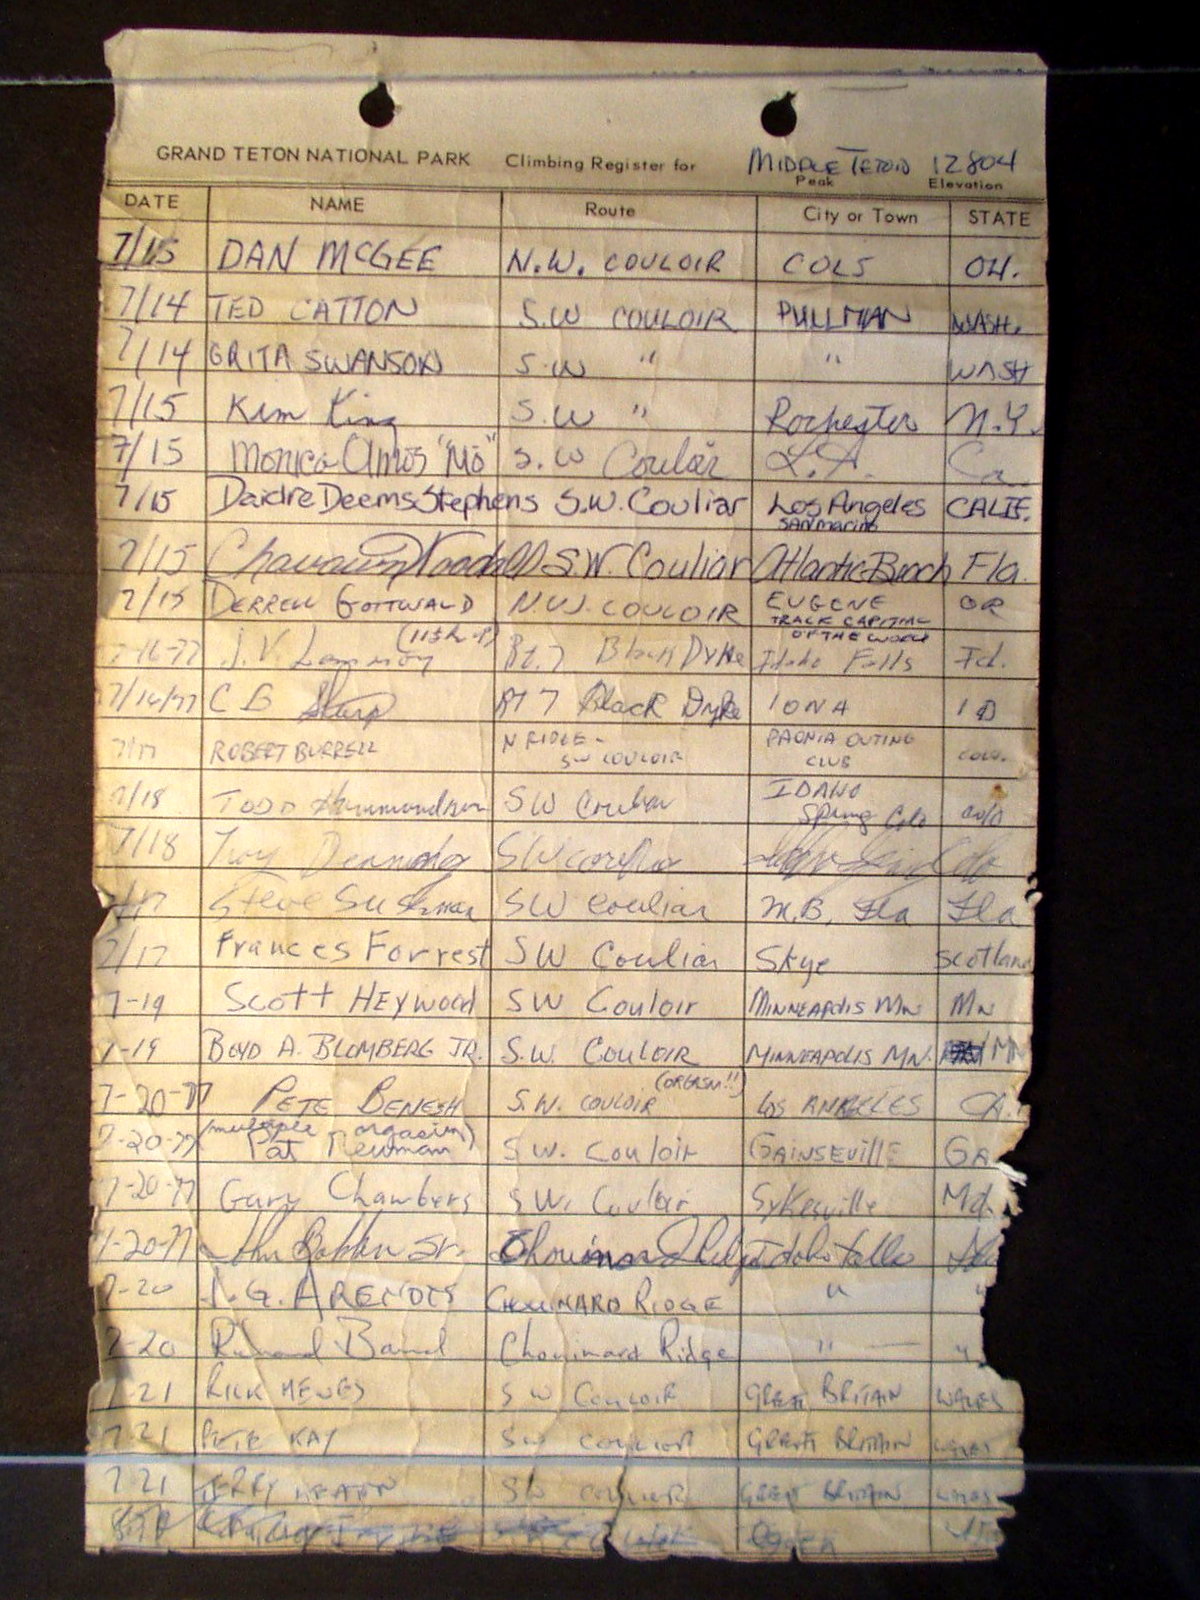 GRAND TETON NATIONAL PARK Climbing Register for MIDDLE TETON 12804
Peak Elevation
DATE NAME Route City or Town STATE
7/15 DAN MCGEE N.W. COULOIR COLS OH.
7/14 TED CATTON S.W COULOIR PULLMAN WASH.
7/14 GRITA SWANSON S.W " " WASH
7/15 Kim King S.W " Rochester N.Y.
7/15 Monica Amos "Mo" S.W Couloir L.A. Ca
7/15 Daidre Deems Stephens S.W. Couliar Los Angeles CALIF.
SAN MARINO
7/15 S.W. Couliar Atlantic Beach Fla.
7/15 DERRELL GOTTWALD N.W. COULOIR EUGENE OR
TRACK CAPITAL
OF THE WORLD
7-16-77 J.V. Rt. 7 Black Dyke Idaho Falls Id.
7/16/77 C B Sharp RT 7 Black Dyke IONA ID
7/17 ROBERT BURRELL N RIDGE - PAONIA OUTING COLO.
SW COULOIR CLUB
7/18 TODD SW Couloir IDAHO Colo
Spring Colo
7/18 Troy SW
7/17 Steve Sussman SW Couliar M.B. Fla Fla
7/17 Frances Forrest SW Couliar Skye Scotland
7-19 Scott HEYWOOD SW Couloir MINNEAPOLIS MN MN
7-19 BOYD A. BLOMBERG JR. S.W. COULOIR MINNEAPOLIS MN. MN
(ORGASM!!)
7-20-77 PETE BENESH S.W. COULOIR LOS ANGELES CA.
(multiple orgasim)
7-20-77 Pat Neuman S.W. Couloir GAINSEVILLE GA
7-20-77 Gary Chambers SW. Couloir Sykesville Md.
7-20-77 Sr. Chouinard Ridge Idaho Falls
7-20 . G. ARENDTS CHOUINARD RIDGE " "
7-20 Chouinard Ridge " "
7-21 RICK MEWES SW COULOIR GREAT BRITAIN WALES
7-21 PETE KAY SW COULIER GREAT BRITAIN WALES
7-21 SW COULIER GREAT BRITAIN WALES
Ogden